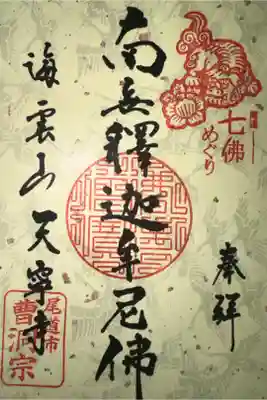 七佛
めぐり
奉拜
南無釋迦牟尼佛
海雲山天寧寺
尾道市
曹洞宗